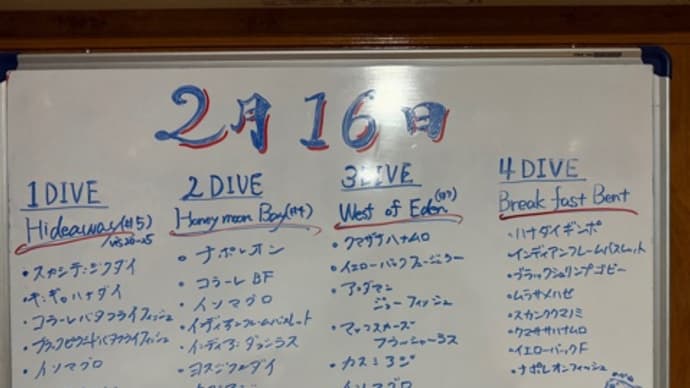 2月16日
1DIVE
Hideaway(#5)
vis20-25
・スカシテンジクダイ
・キンギョハナダイ
・コラーレバタフライフィッシュ
・ブラックピラミッドバタフライフィッシュ
・イソマグロ
2DIVE
Honeymoon Bay(#4)
・ナポレオン
・コラーレBF
・イソマグロ
・インディアンフレームバスレット
・インディアンダッシラス
・ヨスジフエダイ
3DIVE
West of Eden(#7)
・クマザサハナムロ
・イエローバックフュージュラー
・アンダマン
ジョーフィッシュ
・マッコスカーズ
フラッシャーラス
・カスミアジ
4DIVE
Break fast Bent
・ハナダイギンポ
・インディアンフレームバスレット
・ブラックシュリンプゴビー
・ムラサメハゼ
・スカンククマノミ
・クマササハナムロ
・イエローバックF
・ナポレオンフィッシュ